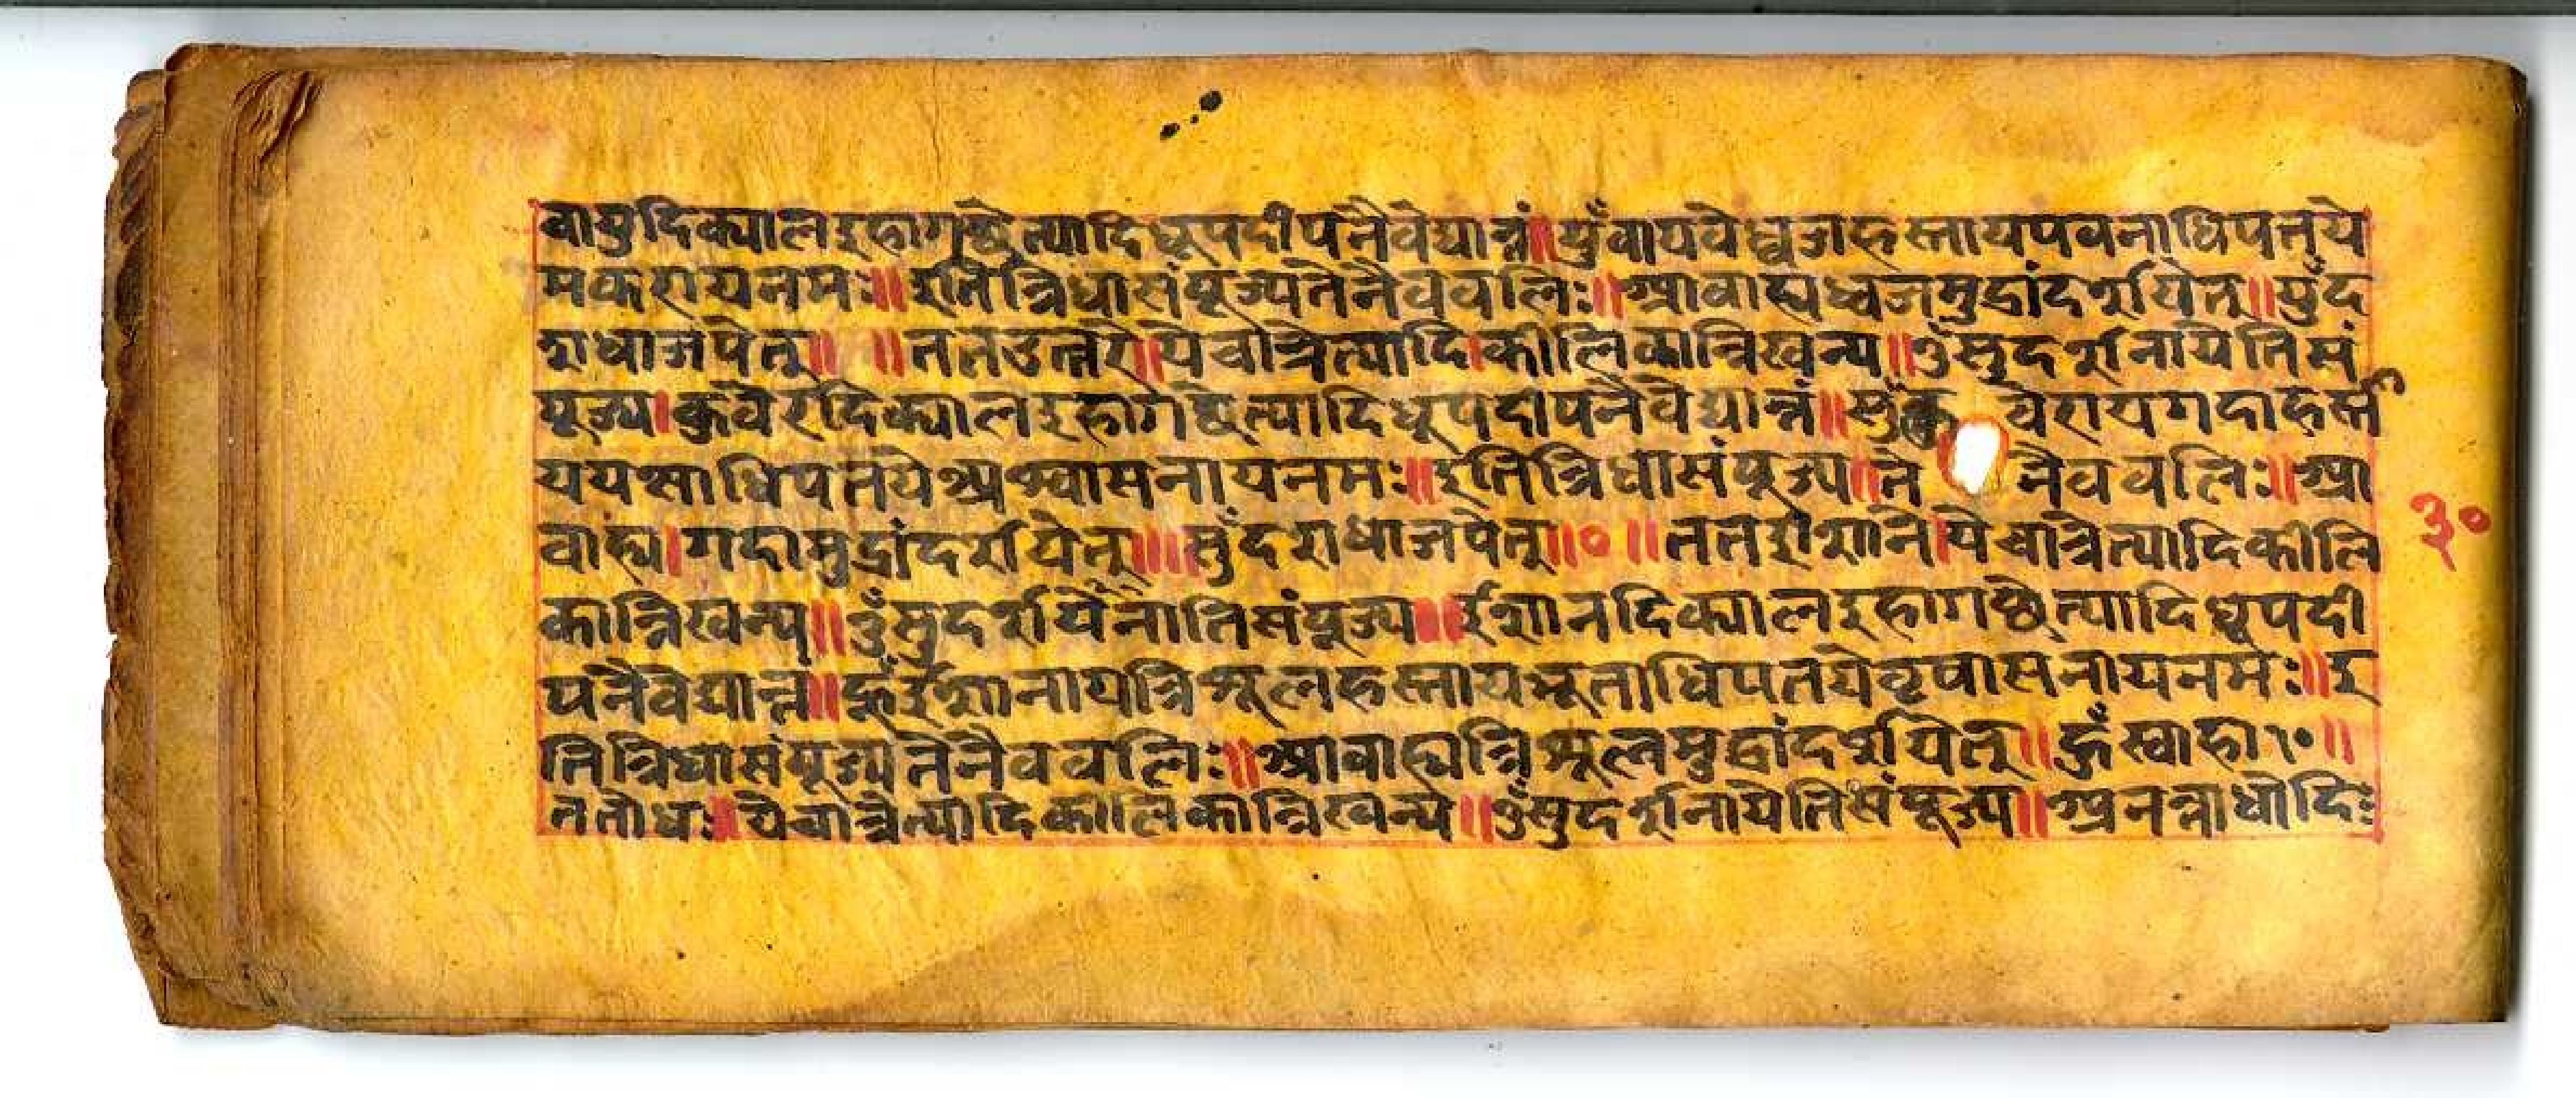 वायुदिक्पालइहागछेत्यादिधूपदीपनैवेद्यान्नं॥युँवायवेध्वजहस्तायपवनाधिपतये
मकरायनमः॥इतित्रिधासंपूज्यतेनैववलिः॥आवाह्यध्वजमुद्रांदर्शयेत्॥युँद
शधाजपेत्॥ ॥ततउत्तरे॥येचात्रेत्यादि।कीलिकान्निखन्य॥उँसुदर्शनायेतिसं
पूज्य।कुवेरदिक्पालइहागछेत्यादिधूपदीपनैवेद्यान्नं॥सुँकु वेरायगदाहस्ता
ययक्षाधिपतयेअश्वासनायनमः॥इतित्रिधासंपूज्य॥ते नैववलिः॥आ
वाह्य।गदामुद्रांदर्शयेत्॥॥सुँदशधाजपेत्॥०॥ततईशाने।येचात्रेत्यादिकीलि
कान्निखन्य॥उँसुदर्शयेनातिसंपूज्य॥ईशानदिक्पालइहागछेत्यादिधूपदी
पनैवेद्यान्नं॥हूँईशानायत्रिशूलहस्तायभूताधिपतयेवृषासनायनमः॥इ
तित्रिधासंपूज्यतेनैववलिः॥आवाह्यत्रिशूलमुद्रांदर्शयेत्॥हुँस्वाहा१०॥
ततोधः॥येचात्रेत्यादिकीलिकान्निखन्य॥उँसुदर्शनायेतिसंपूज्य॥अनन्त्राधोदिः
३०